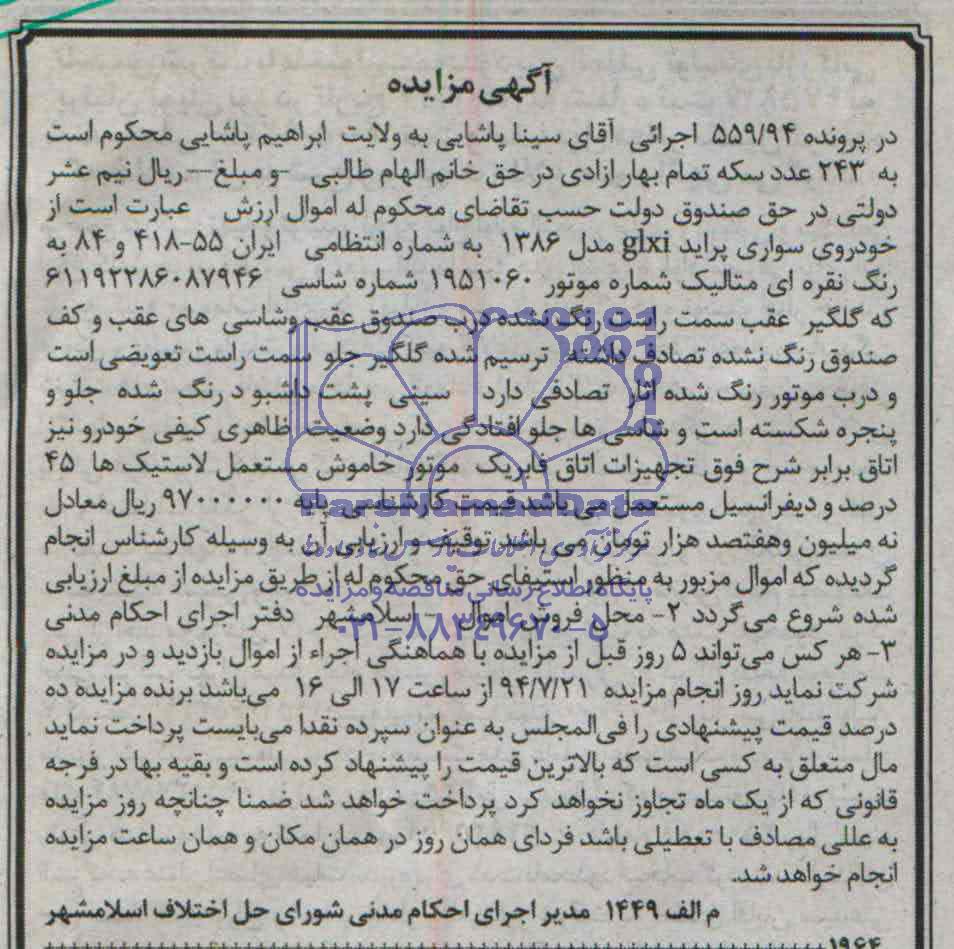 آگهی مزایده
در پرونده ۵۵۹/۹۴ اجرائی آقای سینا پاشایی به ولایت ابراهیم پاشایی محکوم است
به ۲۴۳ عدد سکه تمام بهار ازادی در حق خانم الهام طالبی -و مبلغ--- ریال نیم عشر
دولتی در حق صندوق دولت حسب تقاضای محکوم له اموال ارزش عبارت است از
خودروی سواری پراید glxi مدل ۱۳۸۶ به شماره انتظامی ایران ۵۵-۴۱۸ و ۸۴ به
رنگ نقره ای متالیک شماره موتور ۱۹۵۱۰۶۰ شماره شاسی ۶۱۱۹۲۲۸۶۰۸۷۹۴۶
که گلگیر عقب سمت راست رنگ نشده درب صندوق عقب وشاسی های عقب و کف
صندوق رنگ نشده تصادف داشته ترسیم شده گلگیر جلو سمت راست تعویضی است
و درب موتور رنگ شده اثار تصادفی دارد سینی پشت داشبو د رنگ شده جلو و
پنجره شکسته است و شاسی ها جلو افتادگی دارد وضعیت ظاهری کیفی خودرو نیز
اتاق برابر شرح فوق تجهیزات اتاق فابریک موتور خاموش مستعمل لاستیک ها ۴۵
درصد و دیفرانسیل مستعمل می باشد قیمت کارشناسی پایه ۹۷۰۰۰۰۰۰ ریال معادل
نه میلیون وهفتصد هزار تومان می باشد توقیف و ارزیابی آن به وسیله کارشناس انجام
گردیده که اموال مزبور به منظور استیفای حق محکوم له از طریق مزایده از مبلغ ارزیابی
شده شروع می‌گردد ۲- محل فروش اموال - اسلامشهر دفتر اجرای احکام مدنی
۳- هر کس می‌تواند ۵ روز قبل از مزایده با هماهنگی اجراء از اموال بازدید و در مزایده
شرکت نماید روز انجام مزایده ۹۴/۷/۲۱ از ساعت ۱۷ الی ۱۶ می‌باشد برنده مزایده ده
درصد قیمت پیشنهادی را فی‌المجلس به عنوان سپرده نقدا می‌بایست پرداخت نماید
مال متعلق به کسی است که بالاترین قیمت را پیشنهاد کرده است و بقیه بها در فرجه
قانونی که از یک ماه تجاوز نخواهد کرد پرداخت خواهد شد ضمنا چنانچه روز مزایده
به عللی مصادف با تعطیلی باشد فردای همان روز در همان مکان و همان ساعت مزایده
انجام خواهد شد.
م الف ۱۴۴۹ مدیر اجرای احکام مدنی شورای حل اختلاف اسلامشهر
ParsNamadData
پایگاه اطلاع رسانی مناقصه و مزایده
۰۲۱-۸۸۳۴۹۶۷۰-۵